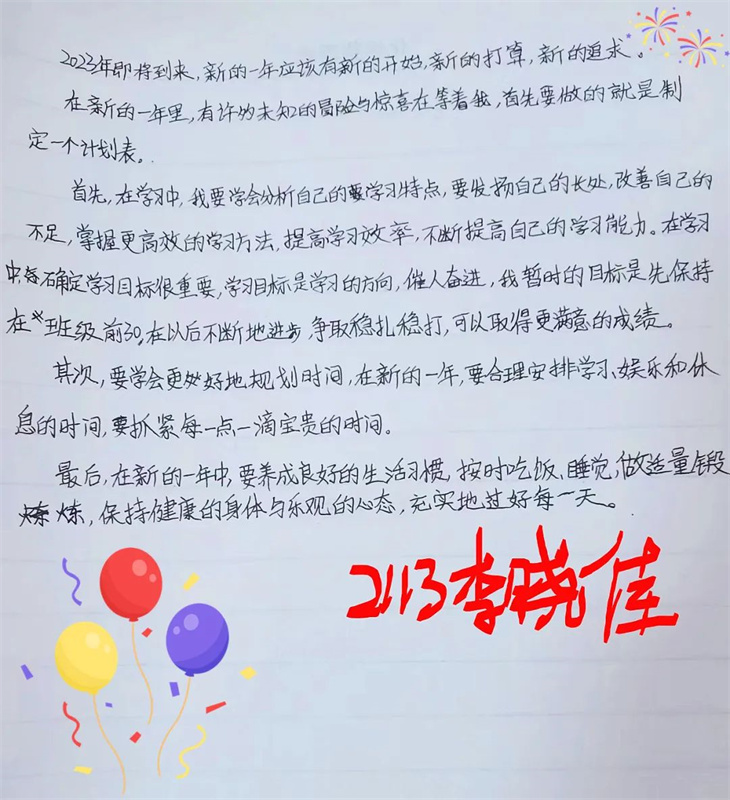 2023年即将到来,新的一年应该有新的开始,新的打算,新的追求。
在新的一年里,有许多未知的冒险与惊喜在等着我,首先要做的就是制
定一个计划表。
首先,在学习中,我要学会分析自己的学习特点,要发扬自己的长处,改善自己的
不足,掌握更高效的学习方法,提高学习效率,不断提高自己的学习能力。在学习
中,确定学习目标很重要,学习目标是学习的方向,催人奋进,我暂时的目标是先保持
在班级前30,在以后不断地进步,争取稳扎稳打,可以取得更满意的成绩。
其次,要学会更好地规划时间,在新的一年,要合理安排学习、娱乐和休
息的时间,要抓紧每一点一滴宝贵的时间。
最后,在新的一年中,要养成良好的生活习惯,按时吃饭、睡觉,做适量锻
炼,保持健康的身体与乐观的心态,充实地过好每一天。
2113李晓佳